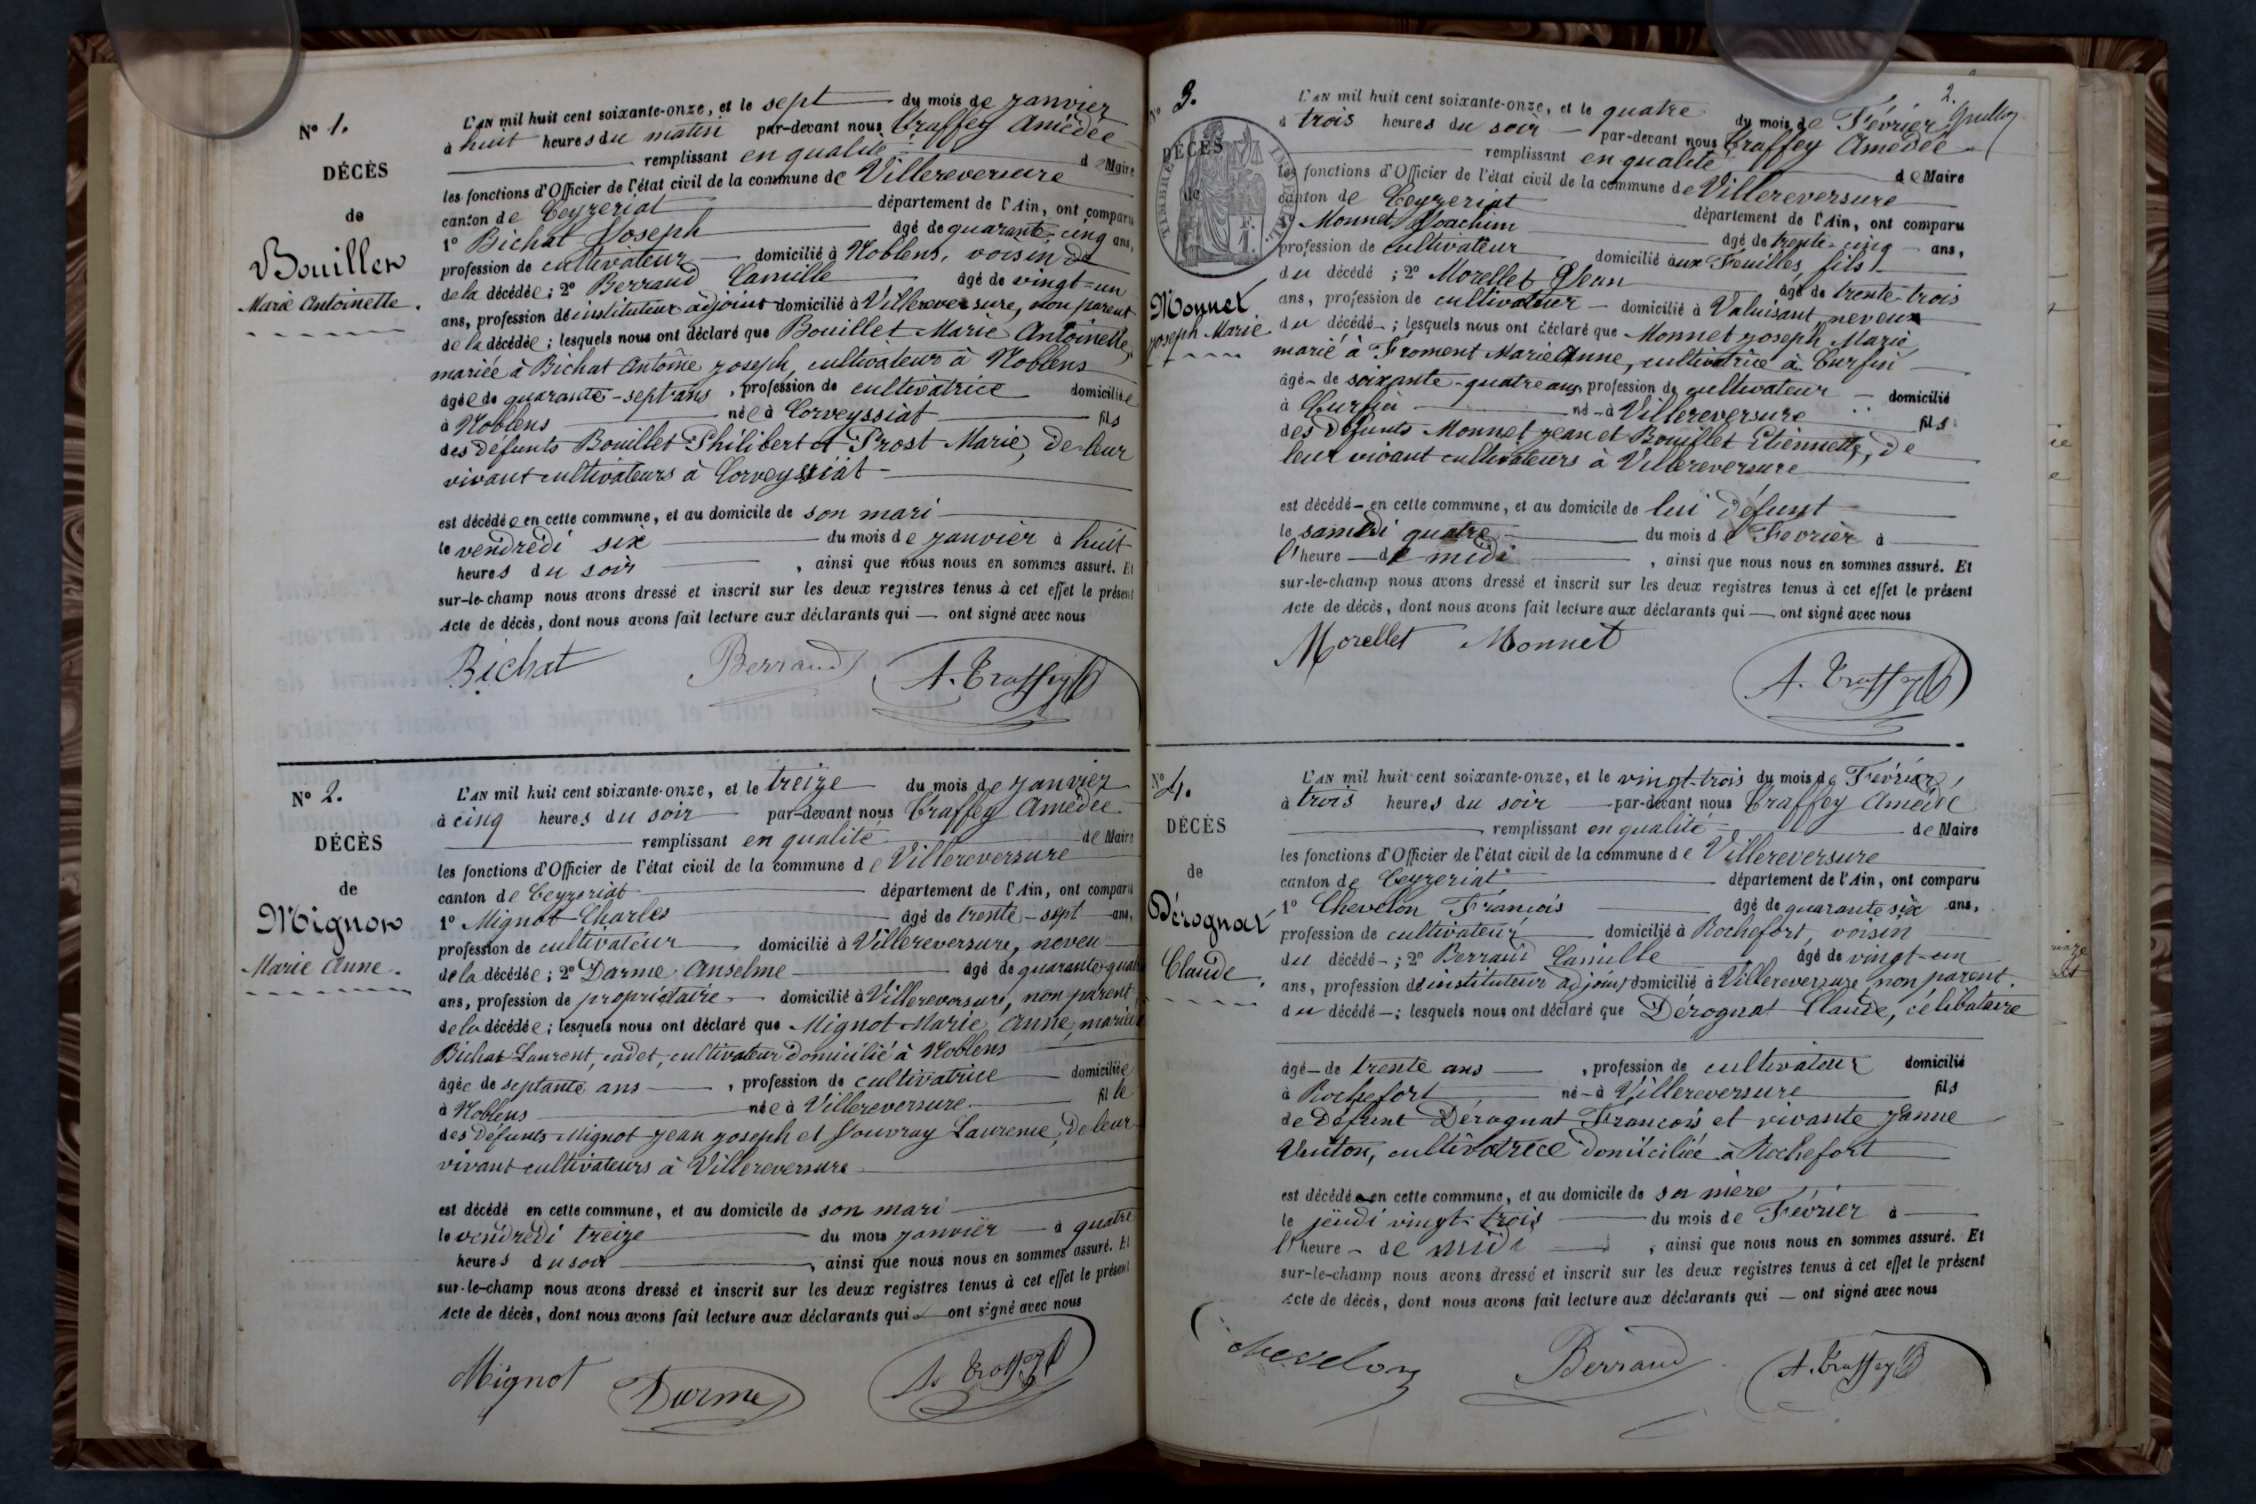 N° 1.
DÉCÈS
de
Bouillet
Marie Antoinette.
L'AN mil huit cent soixante-onze, et le sept du mois de janvier
à huit heures du matin par-devant nous Traffey Amédée
remplissant en qualité de Maire
les fonctions d'Officier de l'état civil de la commune de Villereversure
canton de Ceyzeriat département de l'Ain, ont comparu
1° Bichat Joseph âgé de quarante-cinq ans,
profession de cultivateur domicilié à Noblens, voisin de
de la décédée; 2° Berraud Camille âgé de vingt-un
ans, profession de instituteur adjoint domicilié à Villereversure, non parent
de la décédée; lesquels nous ont déclaré que Bouillet Marie Antoinette,
mariée à Bichat Antoine joseph, cultivateur à Noblens
âgée de quarante-sept ans, profession de cultivatrice domiciliée
à Noblens née à Corveyssiat fils
des défunts Bouillet Philibert et Prost Marie, de leur
vivant cultivateurs à Corveyssiat
est décédée en cette commune, et au domicile de son mari
le vendredi six du mois de janvier à huit
heures du soir, ainsi que nous nous en sommes assuré. Et
sur-le-champ nous avons dressé et inscrit sur les deux registres tenus à cet effet le présent
Acte de décès, dont nous avons fait lecture aux déclarants qui — ont signé avec nous
Bichat Berraud A. Traffey
N° 2.
DÉCÈS
de
Mignot
Marie Anne.
L'AN mil huit cent soixante-onze, et le treize du mois de janvier
à cinq heures du soir par-devant nous Traffey Amédée
remplissant en qualité de Maire
les fonctions d'Officier de l'état civil de la commune de Villereversure
canton de Ceyzeriat département de l'Ain, ont comparu
1° Mignot Charles âgé de trente-sept ans,
profession de cultivateur domicilié à Villereversure, neveu
de la décédée; 2° Darme Anselme âgé de quarante-quatre
ans, profession de propriétaire domicilié à Villereversure, non parent
de la décédée; lesquels nous ont déclaré que Mignot Marie Anne, mariée
Bichat Laurent, cadet, cultivateur domicilié à Noblens
âgée de septante ans, profession de cultivatrice domiciliée
à Noblens née à Villereversure fille
des défunts Mignot jean joseph et Vouvray Laurence, de leur
vivant cultivateurs à Villereversure
est décédé en cette commune, et au domicile de son mari
le vendredi treize du mois janvier à quatre
heures du soir, ainsi que nous nous en sommes assuré. Et
sur-le-champ nous avons dressé et inscrit sur les deux registres tenus à cet effet le présent
Acte de décès, dont nous avons fait lecture aux déclarants qui — ont signé avec nous
Mignot Darme A. Traffey
2.
N° 3.
DÉCÈS
de
Monnet
joseph Marie
L'AN mil huit cent soixante-onze, et le quatre du mois de Février
à trois heures du soir — par-devant nous Traffey Amédée
remplissant en qualité de Maire
les fonctions d'Officier de l'état civil de la commune de Villereversure
canton de Ceyzeriat département de l'Ain, ont comparu
1° Monnet Joachim âgé de trente-cinq ans,
profession de cultivateur domicilié aux Feuilles, fils
du décédé; 2° Morellet Jean âgé de trente-trois
ans, profession de cultivateur domicilié à Valuisant neveux
du décédé; lesquels nous ont déclaré que Monnet joseph Marie
marié à Froment Marie Anne, cultivatrice à Curfin
âgé de soixante-quatre ans, profession de cultivateur domicilié
à Curfin né à Villereversure fils
des défunts Monnet jean et Bouillet Etiennette, de
leur vivant cultivateurs à Villereversure
est décédé en cette commune, et au domicile de lui défunt
le samedi quatre du mois de Février à
l'heure de midi, ainsi que nous nous en sommes assuré. Et
sur-le-champ nous avons dressé et inscrit sur les deux registres tenus à cet effet le présent
Acte de décès, dont nous avons fait lecture aux déclarants qui — ont signé avec nous
Morellet Monnet A. Traffey
N° 4.
DÉCÈS
de
Dérognat
Claude.
L'AN mil huit cent soixante-onze, et le vingt-trois du mois de Février,
à trois heures du soir — par-devant nous Traffey Amédée
remplissant en qualité de Maire
les fonctions d'Officier de l'état civil de la commune de Villereversure
canton de Ceyzeriat département de l'Ain, ont comparu
1° Chevelon François âgé de quarante six ans,
profession de cultivateur domicilié à Rochefort, voisin
du décédé; 2° Berraud Camille âgé de vingt-un
ans, profession de instituteur adjoint domicilié à Villereversure, non parent
du décédé; lesquels nous ont déclaré que Dérognat Claude, célibataire
âgé de trente ans, profession de cultivateur domicilié
à Rochefort né à Villereversure fils
de défunt Dérognat François et vivante janne
Venton, cultivatrice domiciliée à Rochefort
est décédé en cette commune, et au domicile de sa mère
le jeudi vingt-trois du mois de Février à
l'heure de midi, ainsi que nous nous en sommes assuré. Et
sur-le-champ nous avons dressé et inscrit sur les deux registres tenus à cet effet le présent
Acte de décès, dont nous avons fait lecture aux déclarants qui — ont signé avec nous
Chevelon Berraud A. Traffey